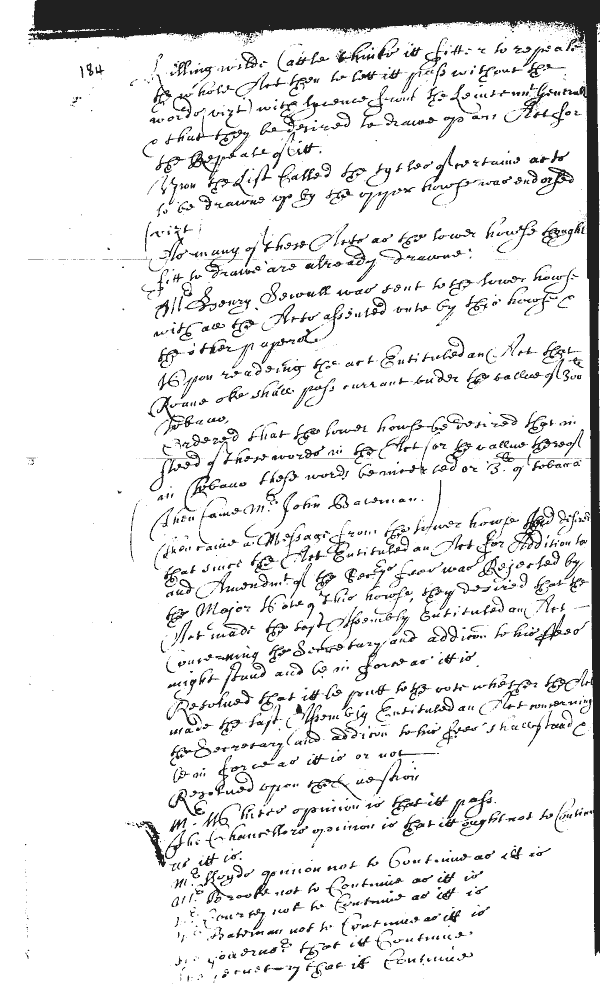 184
Killing wilde Cattle thinks itt fitter to repeale
the whole Act then to lett itt pass without the
words vizt with lycence from the Leiutenn Generall
& that they be desired to drawe up an Act for
the Repeale of itt.
Upon the List Called the tytles of certaine acts
to be drawne up by the upper howse was endorsed
(vizt
As many of these Acts as the lower howse thought
fitt to drawe are already drawne.
Mr Henry Sewall was sent to the lower howse
with all the Acts assented unto by this howse &
the other papers
Upon readeing the act Entituled an Act that
Roane oke shall pass currant under the vallue of 300
Tobacco
Ordered that the lower howse be desired that in
steed of these words in the Act for the vallue thereof
in Tobacco these words be incerted or of tobacco
Then Came Mr John Bateman.
Then came a Message from the lower howse desire
that since the Act Entituled an Act for Addition to
and Amendmt of the Secrys fees was Rejected by
the Major Vote of this howse, they desired that the
Act made the last Assembly Entituled an Act
Concerning the Secretary and addicon to his ffees
might stand and be in force as itt is.
Resolved that itt be putt to the vote whether the Act
made the last Assembly Entituled an Act concerning
the Secretary and addicon to his fees shall stand &
be in force as itt is or not
Resolved upon the Question
Mr Whites opinion is that itt pass.
The Chancellors opinion is that itt ought not to Continue
as itt is.
Mr Lloyds opinion not to Continue as itt is
Mr Brooke not to Continue as itt is
Mr Courtey not to Continue as itt is
Mr Bateman not to Continue as itt is
The governor that itt Continue
The secretary that itt Continue